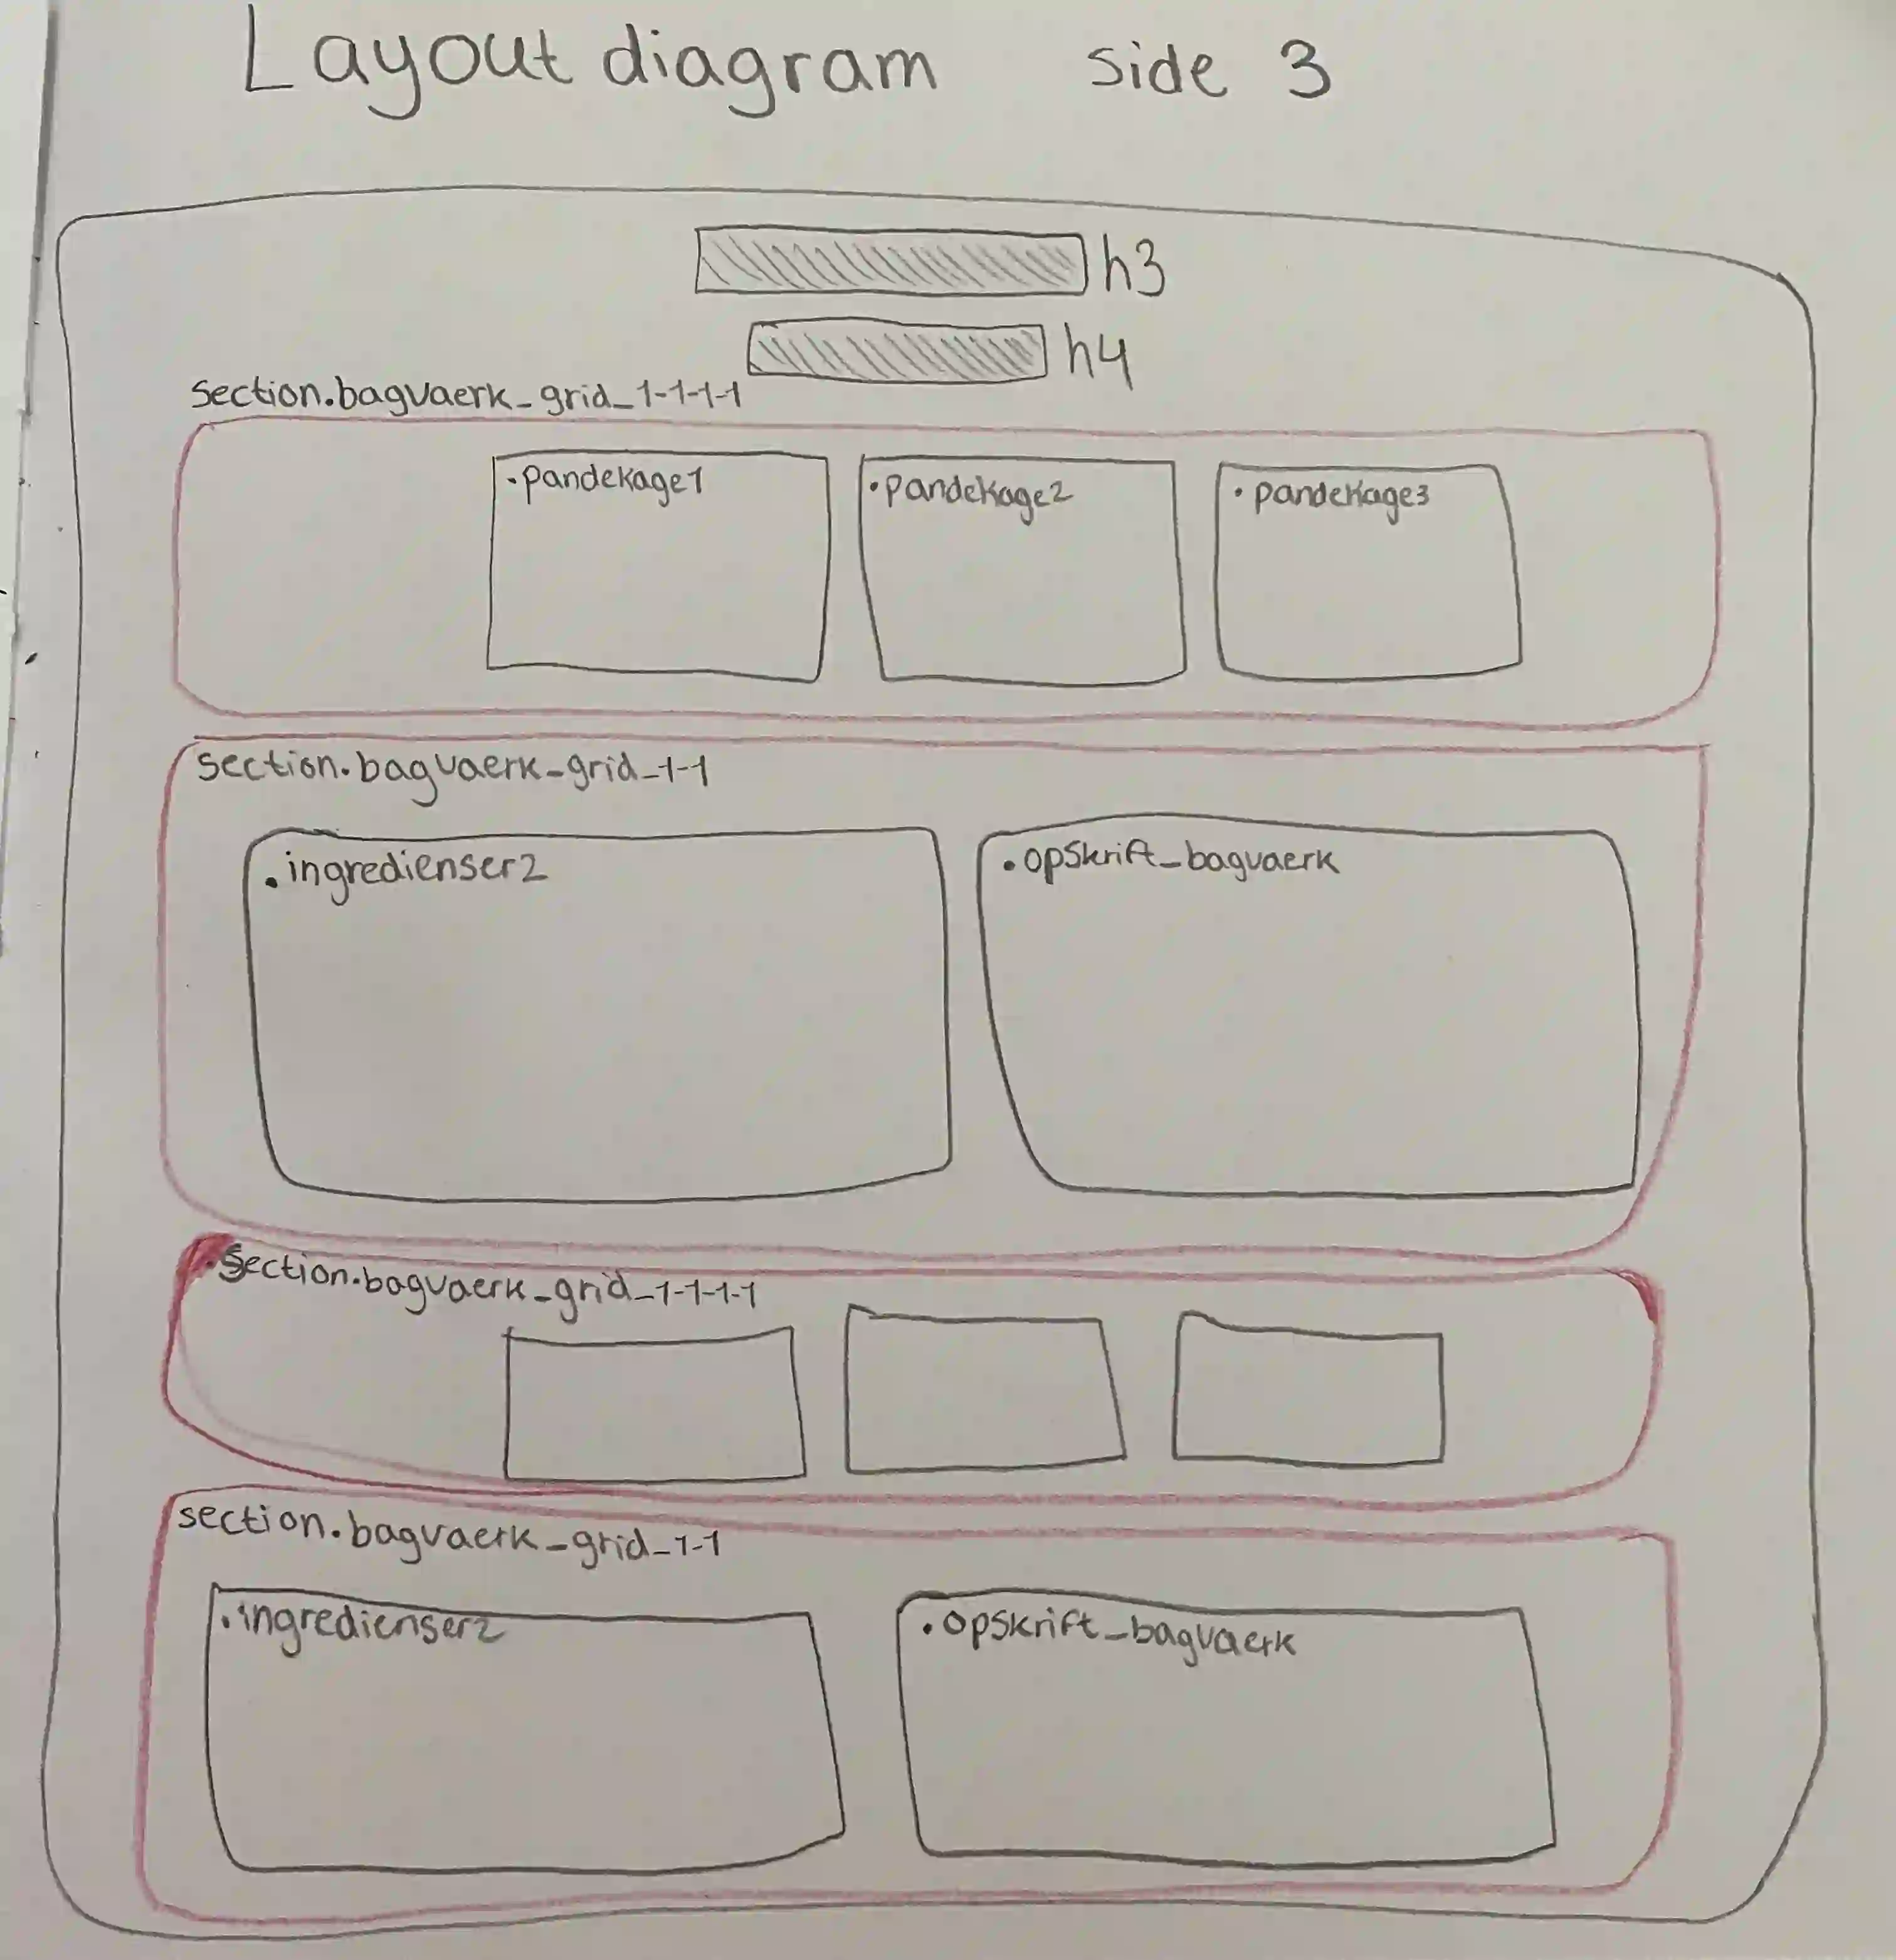 Layout diagram side 3
h3
h4
section.bagvaerk_grid_1-1-1-1
.pandekage1
.pandekage2
.pandekage3
section.bagvaerk_grid_1-1
.ingredienser2
.opskrift_bagvaerk
section.bagvaerk_grid_1-1-1-1
section.bagvaerk_grid_1-1
.ingredienser2
.opskrift_bagvaerk